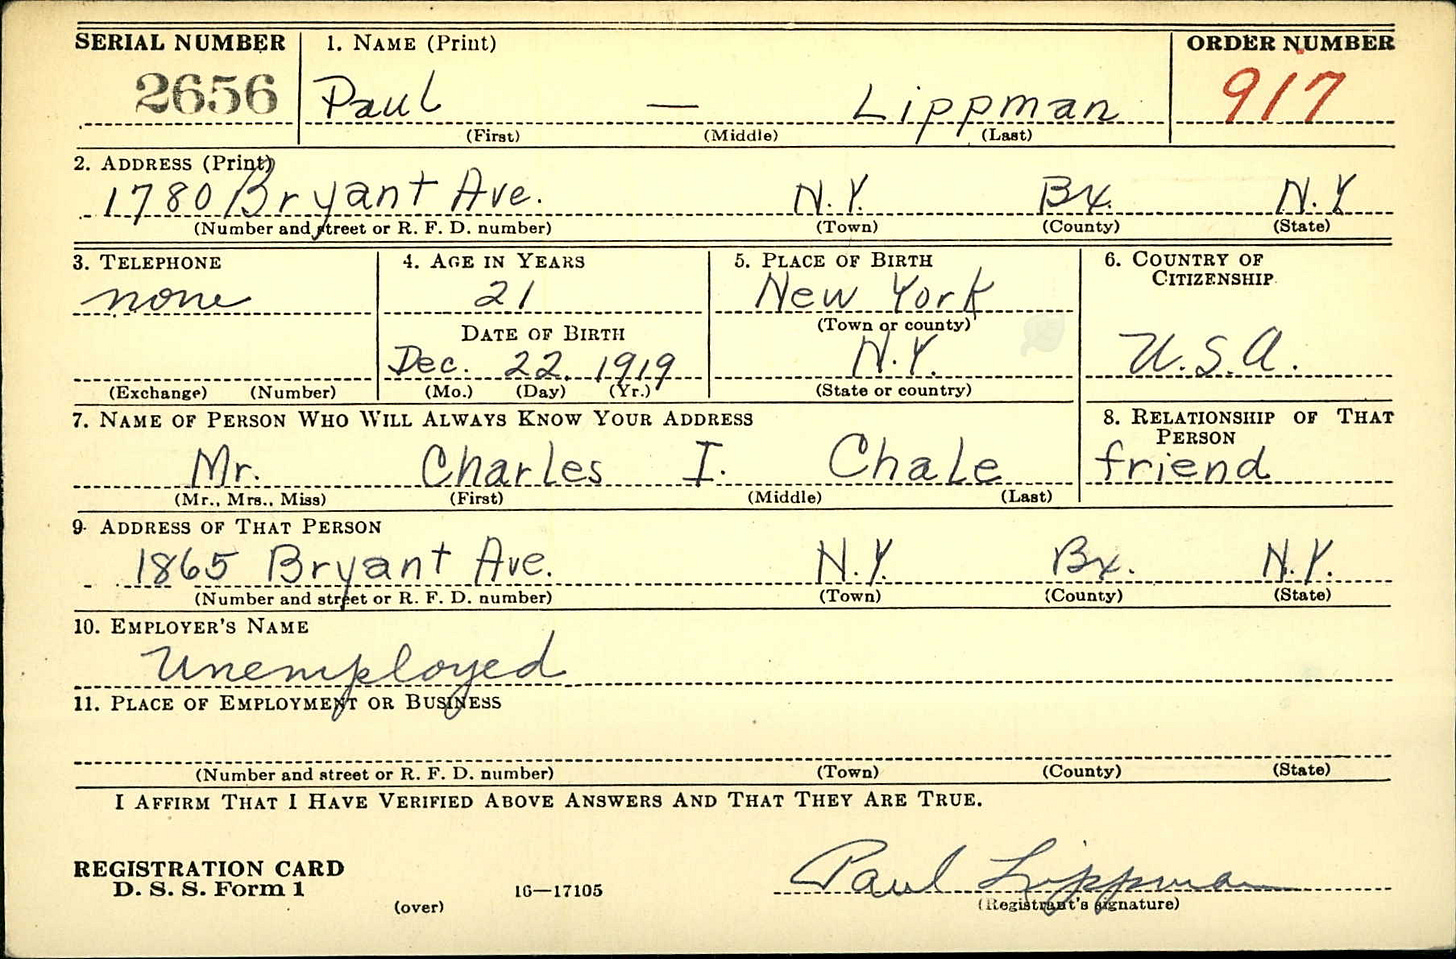 SERIAL NUMBER 1. NAME (Print) ORDER NUMBER
2656 Paul — Lippman 917
(First) (Middle) (Last)
2. ADDRESS (Print)
1780 Bryant Ave. N.Y. Bx. N.Y
(Number and street or R. F. D. number) (Town) (County) (State)
3. TELEPHONE 4. AGE IN YEARS 5. PLACE OF BIRTH 6. COUNTRY OF
CITIZENSHIP
none 21 New York
(Town or county)
DATE OF BIRTH
Dec. 22. 1919 N.Y. U.S.A.
(Exchange) (Number) (Mo.) (Day) (Yr.) (State or country)
7. NAME OF PERSON WHO WILL ALWAYS KNOW YOUR ADDRESS 8. RELATIONSHIP OF THAT
PERSON
Mr. Charles I. Chale friend
(Mr., Mrs., Miss) (First) (Middle) (Last)
9. ADDRESS OF THAT PERSON
1865 Bryant Ave. N.Y. Bx. N.Y.
(Number and street or R. F. D. number) (Town) (County) (State)
10. EMPLOYER'S NAME
Unemployed
11. PLACE OF EMPLOYMENT OR BUSINESS
(Number and street or R. F. D. number) (Town) (County) (State)
I AFFIRM THAT I HAVE VERIFIED ABOVE ANSWERS AND THAT THEY ARE TRUE.
REGISTRATION CARD Paul Lippman
D. S. S. Form 1 16—17105
(over) (Registrant's signature)